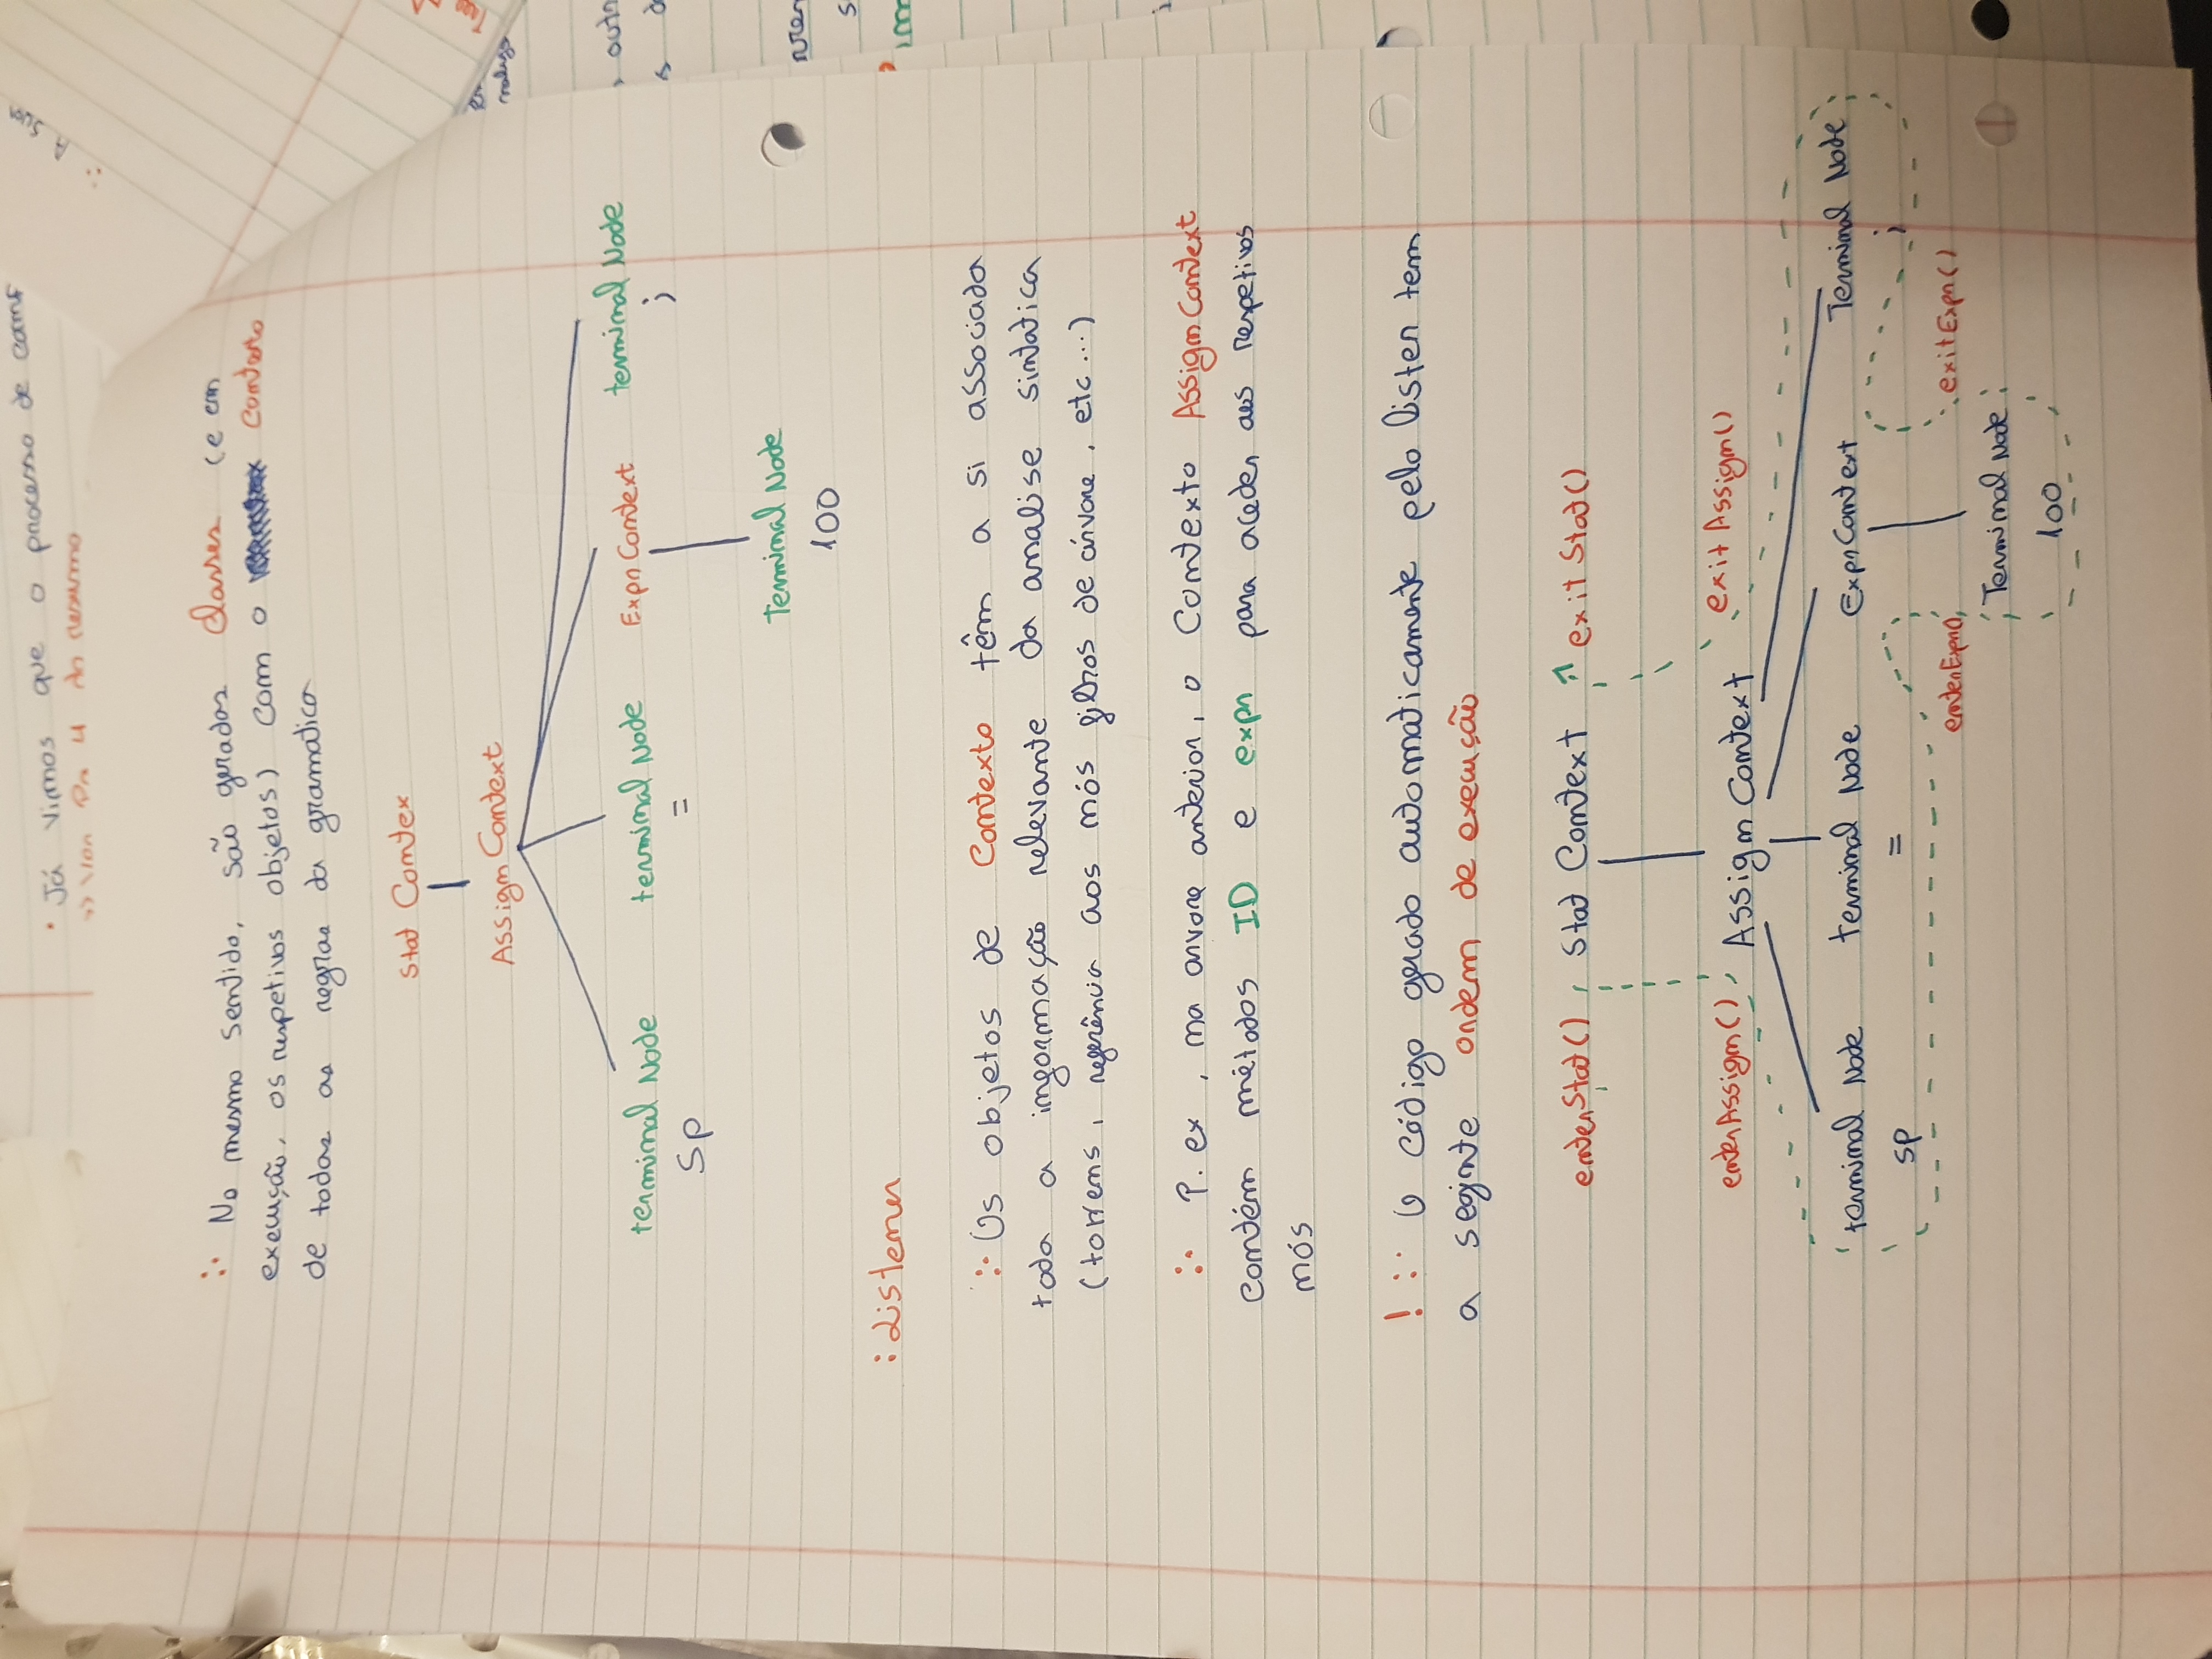 • Já vimos que o processo de comp
>> Ver Pg 4 do resumo
A
∴ No mesmo sentido, são geradas Classes (e em
execução, os respetivos objetos) com o contexto
de todas as regras da gramatica
Stat Contex
Assign Context
terminal Node terminal Node Expr Context terminal Node
sp = ;
Terminal Node
100
: Listener
∴ Os objetos de Contexto têm a si associada
toda a informação relevante da analise sintatica
(tokens, referência aos nós filhos de árvore, etc...)
∴ P. ex, na arvore anterior, o Contexto Assign Context
contém métodos ID e expr para aceder aos respetivos
nós
! ∴ O código gerado automaticamente pelo listen tem
a seginte ordem de execução
enterStat() Stat Context exit Stat()
enterAssign() Assign Context exit Assign()
terminal Node terminal Node Expr Context Terminal Node
sp = ;
enterExpr() exitExpr()
Terminal Node
100